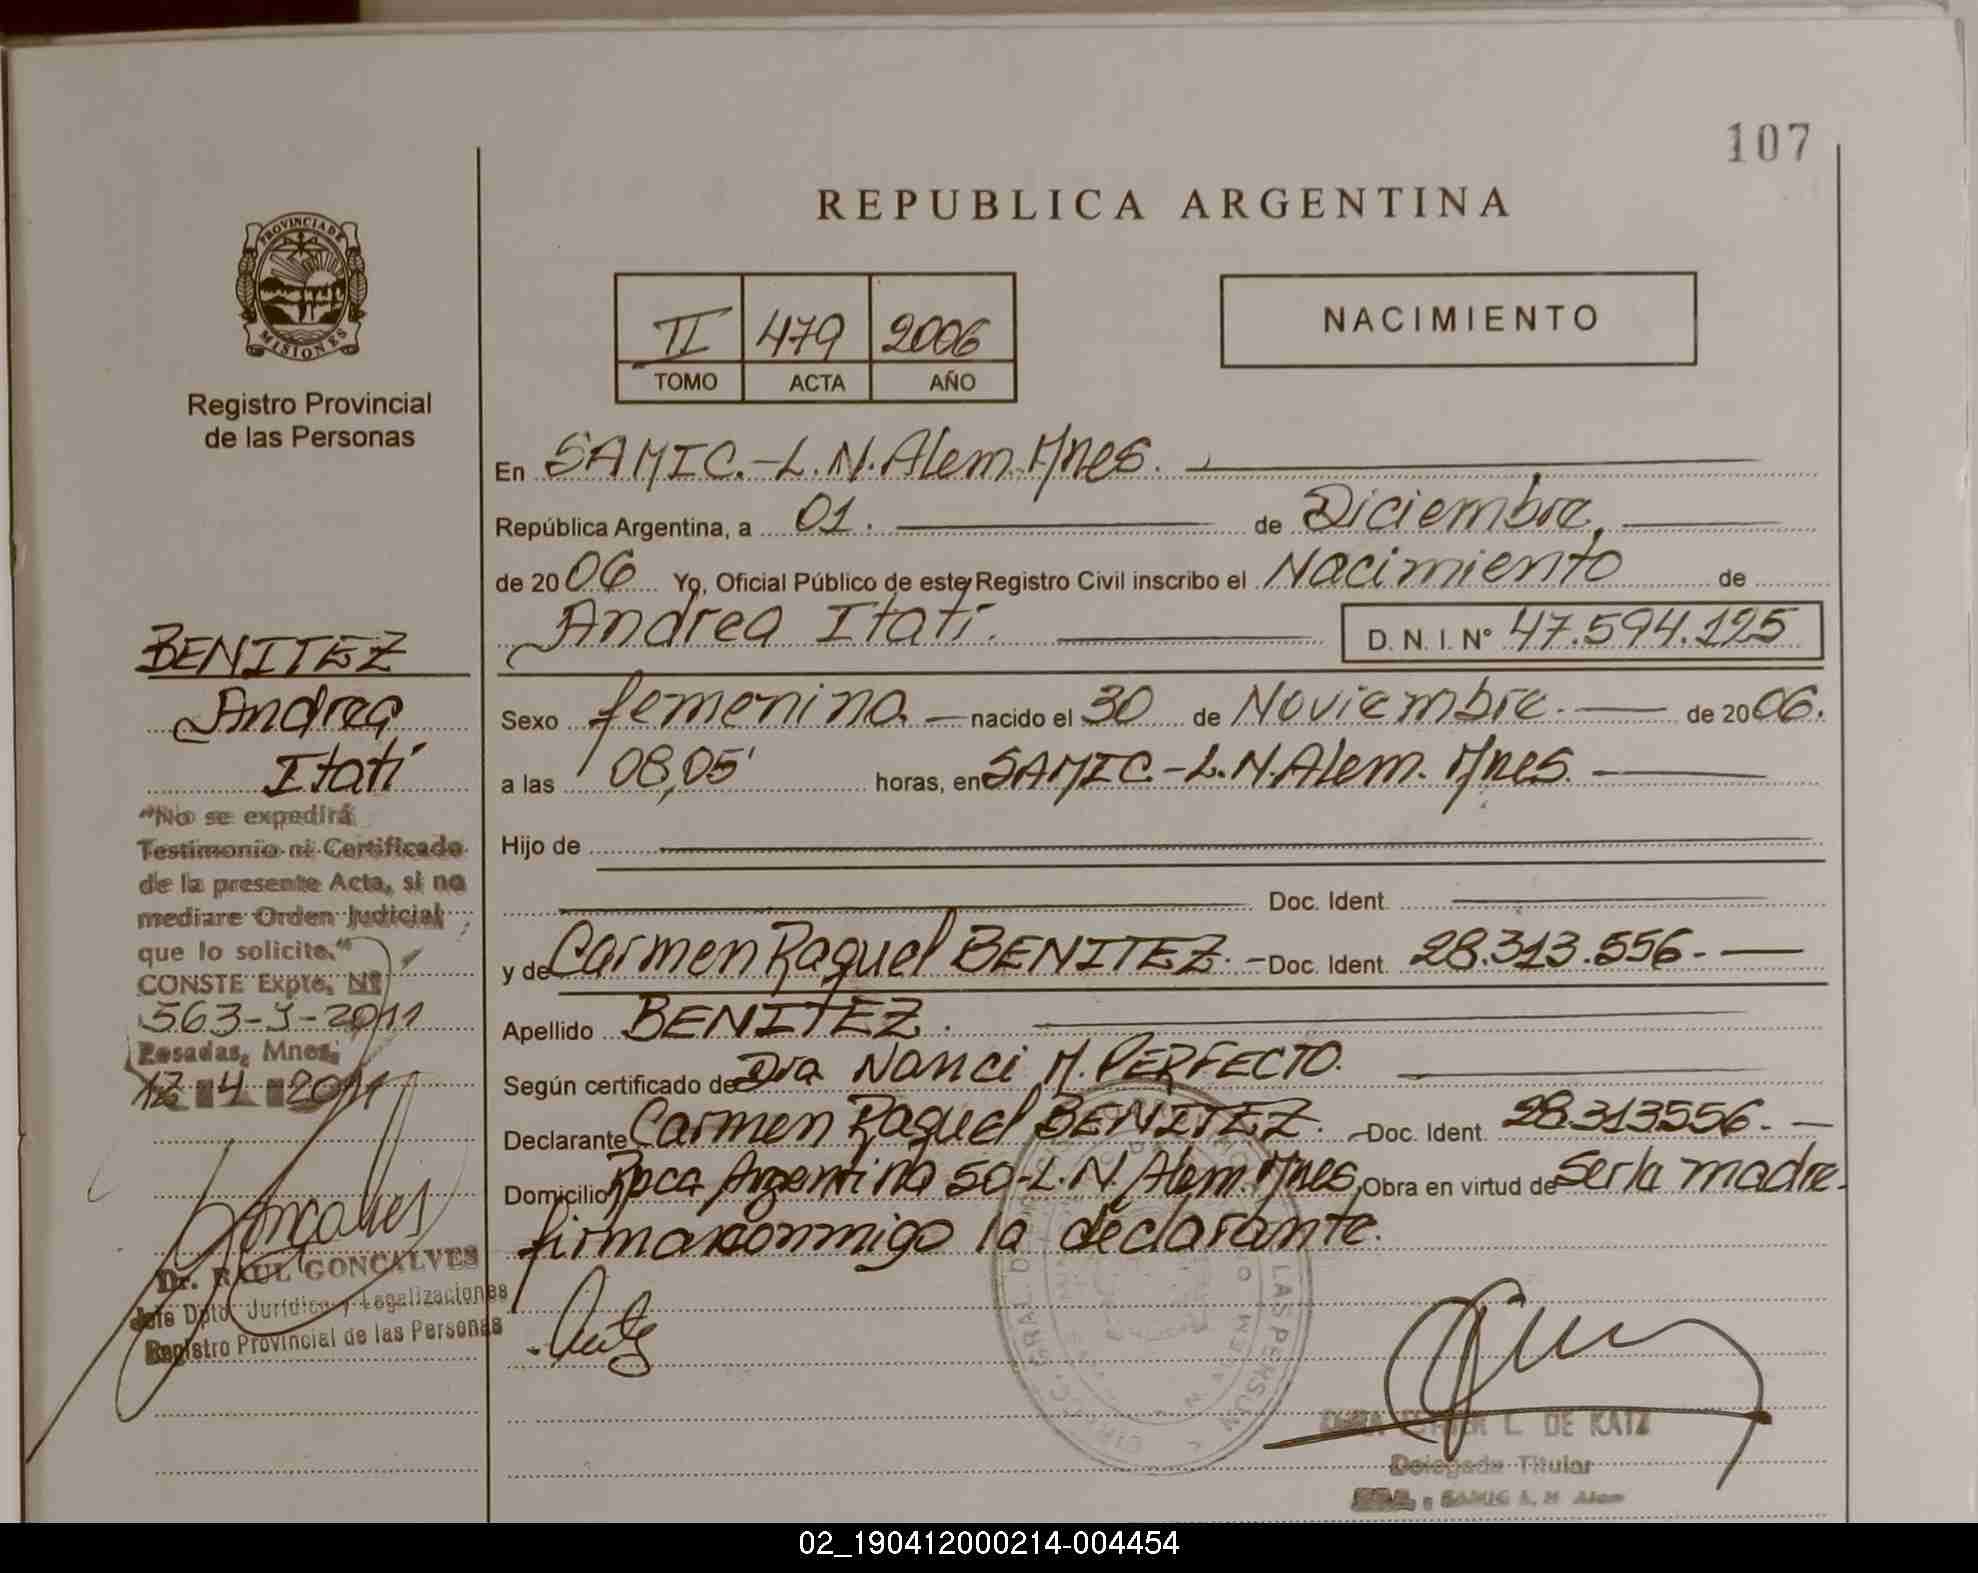 107
REPUBLICA ARGENTINA
PROVINCIA DE
MISIONES
Registro Provincial
de las Personas
II 479 2006
TOMO ACTA AÑO
NACIMIENTO
En SAMIC.-L.N.Alem.Mnes.
República Argentina, a 01. de Diciembre,
de 2006 Yo, Oficial Público de este Registro Civil inscribo el Nacimiento de
Andrea Itatí. D. N. I. N° 47.594.125
Sexo femenina nacido el 30 de Noviembre. de 2006.
a las 08,05' horas, en SAMIC-L.N.Alem. Mnes.
Hijo de
Doc. Ident.
y de Carmen Raquel BENITEZ. Doc. Ident. 28.313.556.-
Apellido BENITEZ.
Según certificado de Dra Nanci M. PERFECTO.
Declarante Carmen Raquel BENITEZ. Doc. Ident. 28.313556.-
Domicilio Rpca Argentina 50-L.N. Alem.Mnes, Obra en virtud de ser la madre.
firma conmigo la declarante.
BENITEZ
Andrea
Itatí
"No se expedirá
Testimonio ni Certificado
de la presente Acta, si no
mediare Orden Judicial
que lo solicite."
CONSTE Expte. Nº
563-J-2011
Posadas, Mnes,
12 4 2011
Goncalves
Dr. RAUL GONCALVES
Jefe Dpto. Jurídico y Legalizaciones
Registro Provincial de las Personas
L. DE KATZ
Delegada Titular
02_190412000214-004454